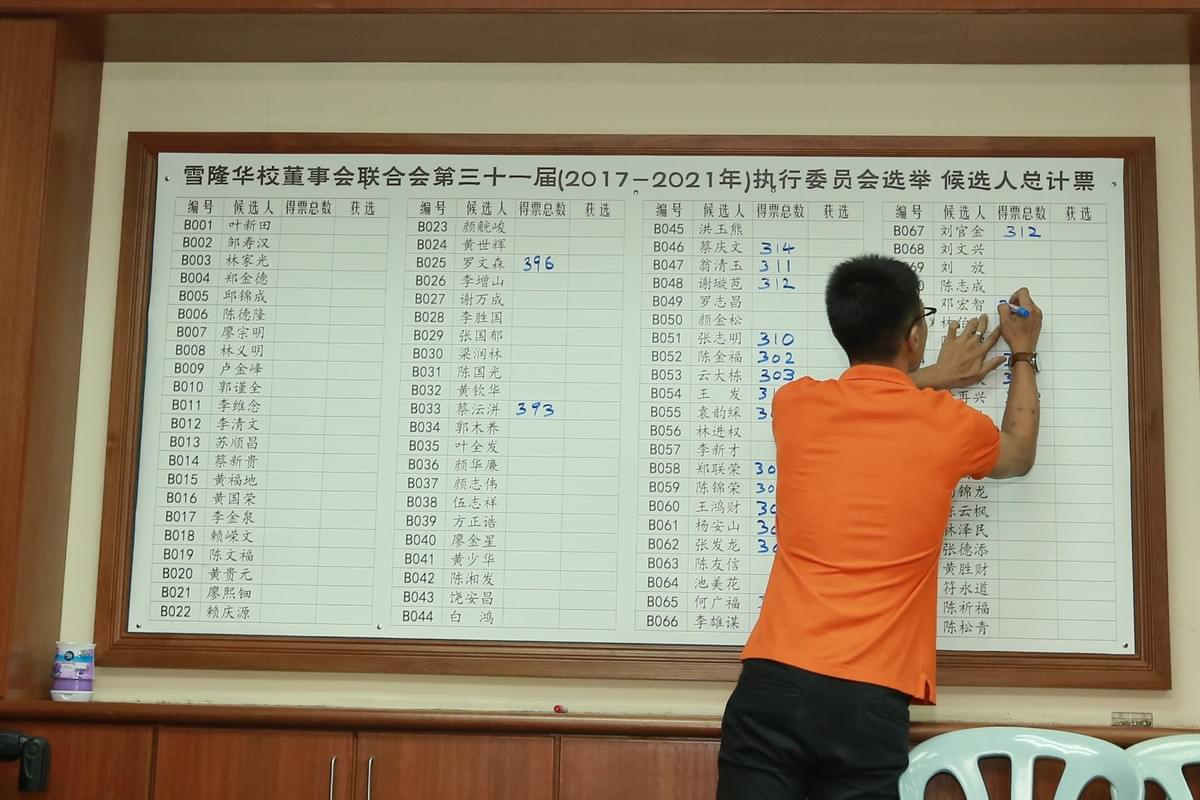 雪隆华校董事会联合会第三十一届(2017-2021年)执行委员会选举 候选人总计票
编号 候选人 得票总数 获选
B001 叶新田
B002 邹寿汉
B003 林家光
B004 郑金德
B005 邱锦成
B006 陈德隆
B007 廖宗明
B008 林义明
B009 卢金峰
B010 郭谨全
B011 李维念
B012 李清文
B013 苏顺昌
B014 蔡新贵
B015 黄福地
B016 黄国荣
B017 李金泉
B018 赖嵘文
B019 陈文福
B020 黄贵元
B021 廖熙钿
B022 赖庆源
编号 候选人 得票总数 获选
B023 颜觥峻
B024 黄世辉
B025 罗文森 396
B026 李增山
B027 谢万成
B028 李胜国
B029 张国郁
B030 梁润林
B031 陈国光
B032 黄钦华
B033 蔡沄洴 393
B034 郭木养
B035 叶全发
B036 颜华廉
B037 颜志伟
B038 伍志祥
B039 方正浩
B040 廖金星
B041 黄少华
B042 陈湘发
B043 饶安昌
B044 白 鸿
编号 候选人 得票总数 获选
B045 洪玉熊
B046 蔡庆文 314
B047 翁清玉 311
B048 谢璇琶 312
B049 罗志昌
B050 颜金松
B051 张志明 310
B052 陈金福 302
B053 云大栋 303
B054 王 发
B055 袁韵綵
B056 林进权
B057 李新才
B058 郑联荣
B059 陈锦荣
B060 王鸿财
B061 杨安山
B062 张发龙
B063 陈友信
B064 池美花
B065 何广福
B066 李雄谋
编号 候选人 得票总数 获选
B067 刘官金 312
B068 刘文兴
69 刘 放
陈志成
邓宏智
再兴
锦龙
云枫
林泽民
张德添
黄胜财
符永道
陈祈福
陈松青